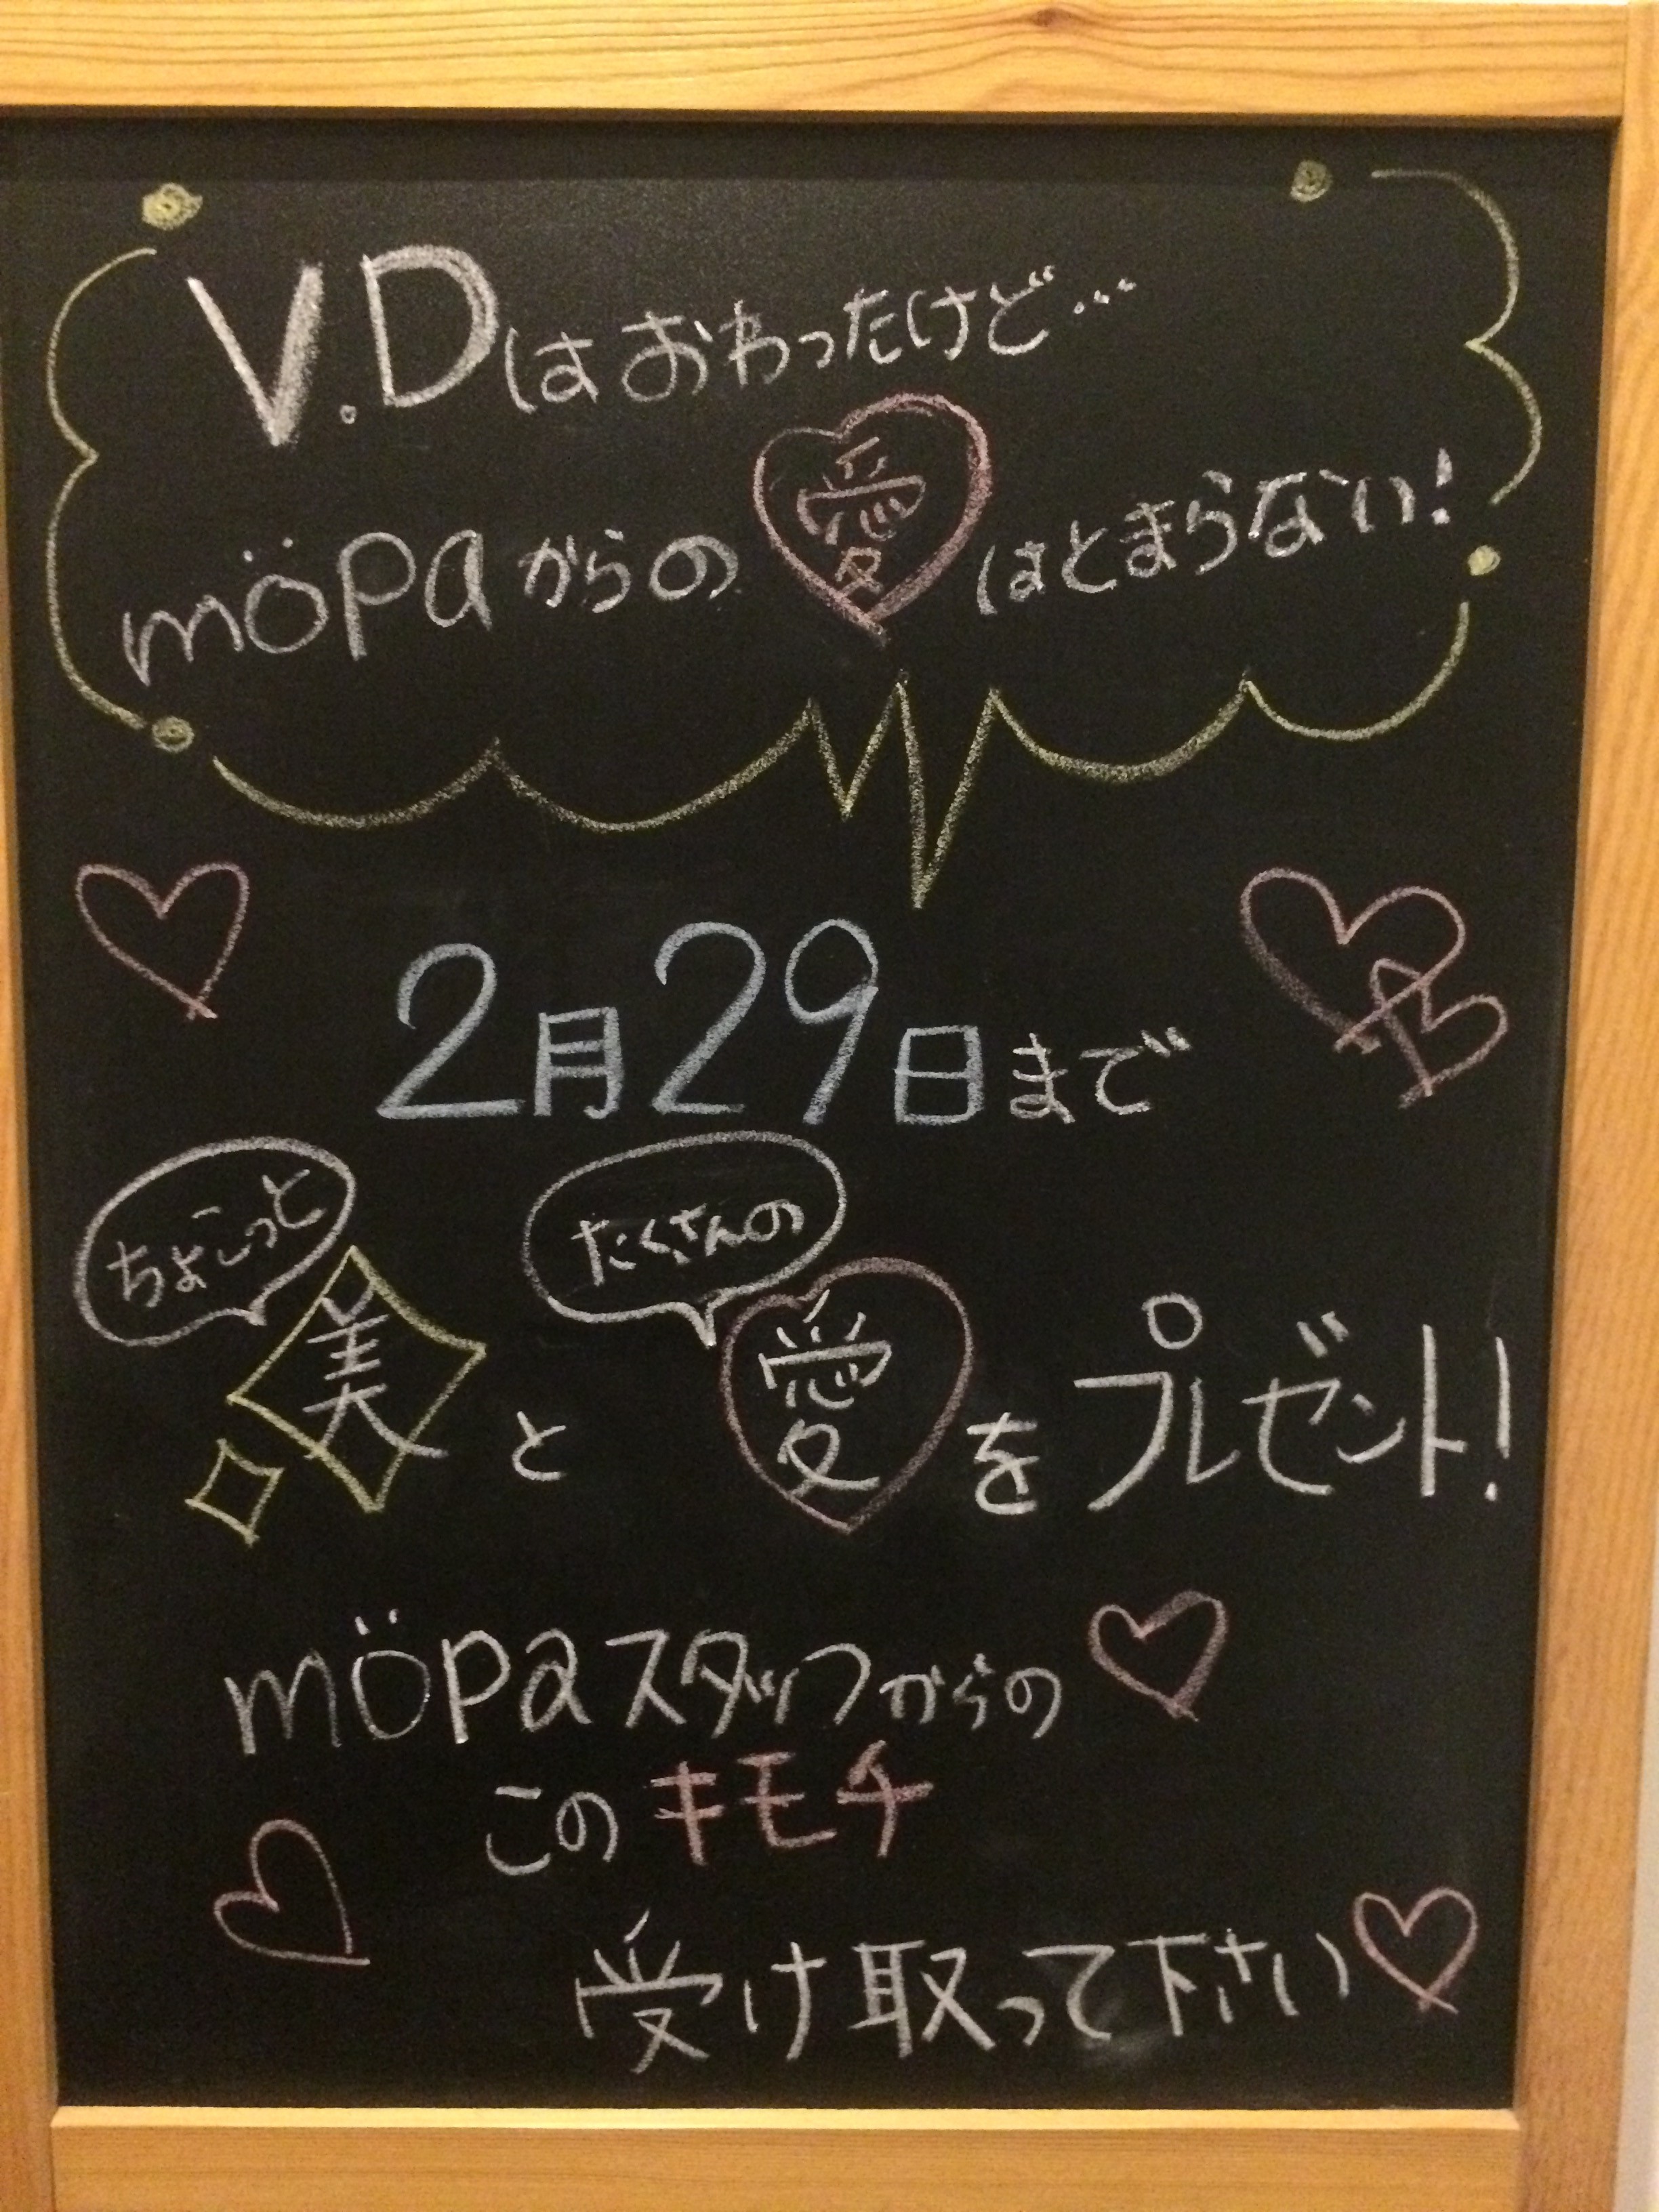 V.Dはおわったけど…
möpaからの愛はとまらない!
2月29日まで
ちょこっと たくさんの
美と愛をプレゼント!
möpaスタッフからの
このキモチ
受け取って下さい